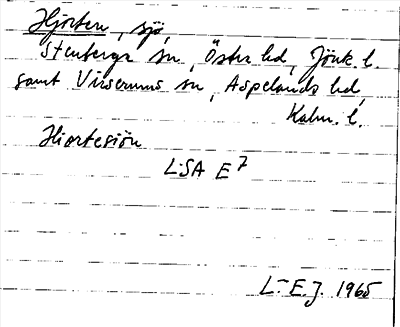 Hjorten, sjö,
Stenberga sn, Östra hd, Jönk. l.
samt Virserums sn, Aspelands hd,
Kalm. l.
Hiortesiön
LSA E7
L-E.J. 1965